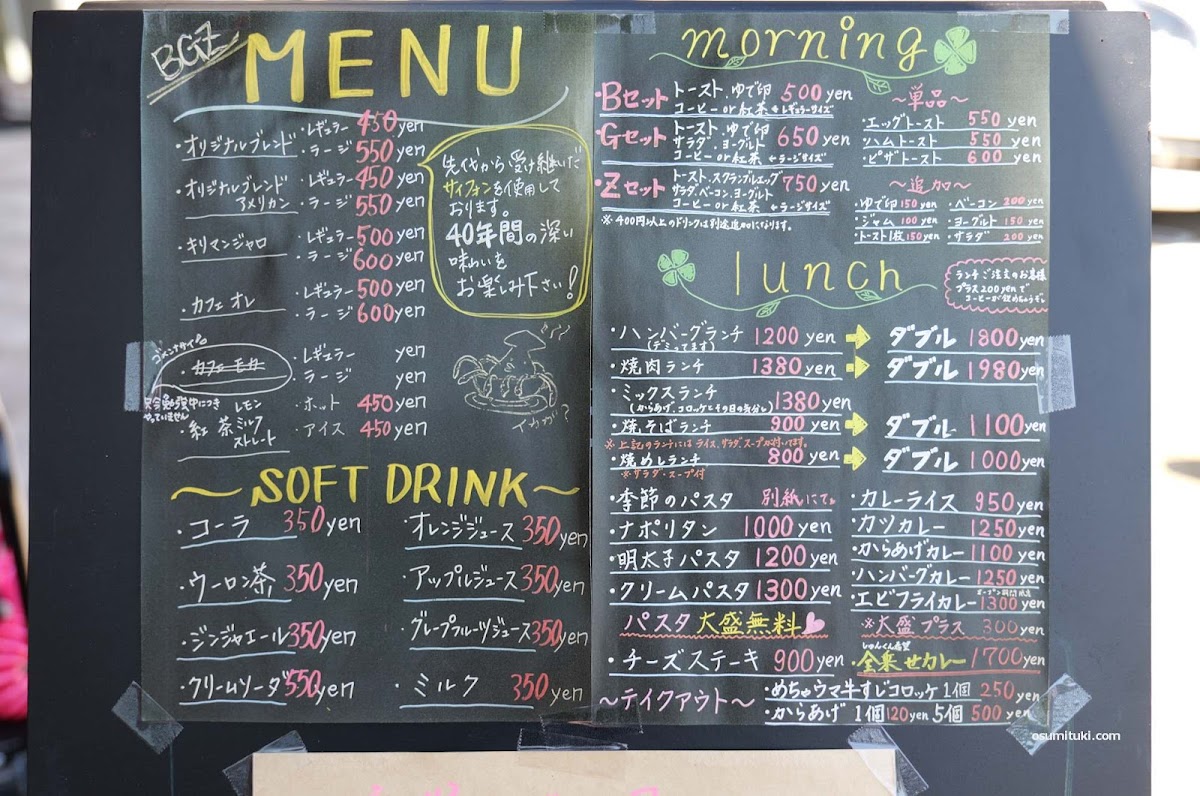 BGZ
MENU
・オリジナルブレンド ・レギュラー 450yen
・ラージ 550yen
・オリジナルブレンド アメリカン ・レギュラー 450yen
・ラージ 550yen
・キリマンジャロ ・レギュラー 500yen
・ラージ 600yen
・カフェオレ ・レギュラー 500yen
・ラージ 600yen
ゴメンナサイ
・カフェモカ ・レギュラー yen
・ラージ yen
やっていません
・紅茶 レモン ミルク ストレート ・ホット 450yen
・アイス 450yen
先代から受け継いだ
サイフォンを使用して
おります。
40年間の深い
味わいを
お楽しみ下さい!
イカガ?
〜SOFT DRINK〜
・コーラ 350yen
・オレンジジュース 350yen
・ウーロン茶 350yen
・アップルジュース 350yen
・ジンジャエール 350yen
・グレープフルーツジュース 350yen
・クリームソーダ 550yen
・ミルク 350yen
morning
・Bセット トースト、ゆで卵 500yen
コーヒー or 紅茶 ←レギュラーサイズ
・Gセット トースト、ゆで卵 650yen
サラダ・ヨーグルト
コーヒー or 紅茶 ←ラージサイズ
・Zセット トースト、スクランブルエッグ 750yen
サラダ・ベーコン、ヨーグルト
コーヒー or 紅茶 ←ラージサイズ
※400円以上のドリンクは別途追加になります。
〜単品〜
・エッグトースト 550yen
・ハムトースト 550yen
・ピザトースト 600yen
〜追加〜
・ゆで卵 150yen ・ベーコン 200yen
・ジャム 100yen ・ヨーグルト 150yen
・トースト1枚 150yen ・サラダ 200yen
lunch
ランチご注文のお客様
プラス200yenで
コーヒーが飲めちゃうぞ。
・ハンバーグランチ 1200yen → ダブル 1800yen
(デミってます)
・焼肉ランチ 1380yen → ダブル 1980yen
・ミックスランチ 1380yen
(からあげ、コロッケとその日の気分し)
・焼そばランチ 900yen → ダブル 1100yen
※上記のランチにはライス、サラダ、スープが付いてます。
・焼めしランチ 800yen → ダブル 1000yen
※サラダ・スープ付
・季節のパスタ 別紙にて。
・ナポリタン 1000yen
・明太子パスタ 1200yen
・クリームパスタ 1300yen
パスタ大盛無料
・チーズステーキ 900yen
・カレーライス 950yen
・カツカレー 1250yen
・からあげカレー 1100yen
・ハンバーグカレー 1250yen
・エビフライカレー 1300yen
※大盛プラス 300yen
・全乗せカレー 1700yen
〜テイクアウト〜
・めちゃウマ牛すじコロッケ 1個 250yen
・からあげ 1個 120yen 5個 500yen
osumituki.com